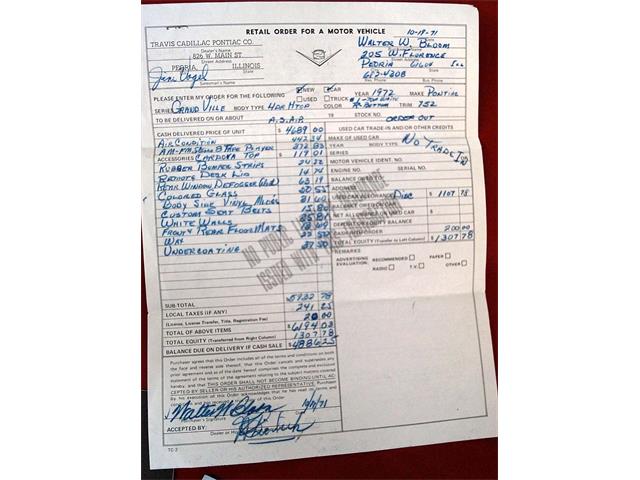 RETAIL ORDER FOR A MOTOR VEHICLE
TRAVIS CADILLAC PONTIAC CO.
Dealer's Name
826 W. MAIN ST
Street Address
PEORIA, ILLINOIS
State
Salesman's Name
10-19-71
WALTER W. BLOOM
205 W. FLORENCE
Street Address
PEORIA 61604 ILL
673-4308
Bus. Phone
PLEASE ENTER MY ORDER FOR THE FOLLOWING
NEW CAR
USED TRUCK
YEAR 1972 MAKE PONTIAC
SERIES GRAND VILLE BODY TYPE 4DR HTOP COLOR TRIM 752
TO BE DELIVERED ON OR ABOUT A.S.A.P. 19 STOCK NO. ORDER OUT
CASH DELIVERED PRICE OF UNIT $4689 00
USED CAR TRADE-IN AND/OR OTHER CREDITS
AIR CONDITION 442 34
MAKE OF USED CAR
NO TRADE IN
AM-FM STEREO 8 TAPE PLAYER
YEAR BODY TYPE
ACCESSORIES CORDOVA TOP 117 01
SERIES
RUBBER BUMPER STRIPS
MOTOR VEHICLE IDENT. NO.
REMOTE DECK LID 14 74
ENGINE NO. SERIAL NO.
REAR WINDOW DEFOGGER 63 19
BALANCE OWED TO
COLORED GLASS
ADDRESS
BODY SIDE VINYL MLDGS
USED CAR ALLOWANCE DISC $1107 78
CUSTOM SEAT BELTS 15 80
BALANCE OWED ON CAR
WHITE WALLS
NET ALLOWANCE ON USED CAR $
FRONT & REAR FLOOR MATS
WAX
CASH WITH ORDER 200 00
UNDERCOATING 37 50
TOTAL EQUITY (Transfer to Left Column) $1307 78
REMARKS
ADVERTISING EVALUATION: RECOMMENDED PAPER
RADIO T.V. OTHER
SUB-TOTAL 5932 78
LOCAL TAXES (IF ANY) 241 25
(License, License Transfer, Title, Registration Fee) 20 00
TOTAL OF ABOVE ITEMS $6194 03
TOTAL EQUITY (Transferred from Right Column) 1307 78
BALANCE DUE ON DELIVERY IF CASH SALE $4886 25
Purchaser agrees that this Order includes all of the terms and conditions on both
the face and reverse side hereof, that this Order cancels and supersedes any
prior agreement and as of the date hereof comprises the complete and exclusive
statement of the terms of the agreement relating to the subject matters covered
hereby, and that THIS ORDER SHALL NOT BECOME BINDING UNTIL AC-
CEPTED BY SELLER OR HIS AUTHORIZED REPRESENTATIVE. Purchaser
by his execution of this Order acknowledges that he has read its terms and
Walter W Bloom 10/19/71
Purchaser's Signature
ACCEPTED BY:
TC-2